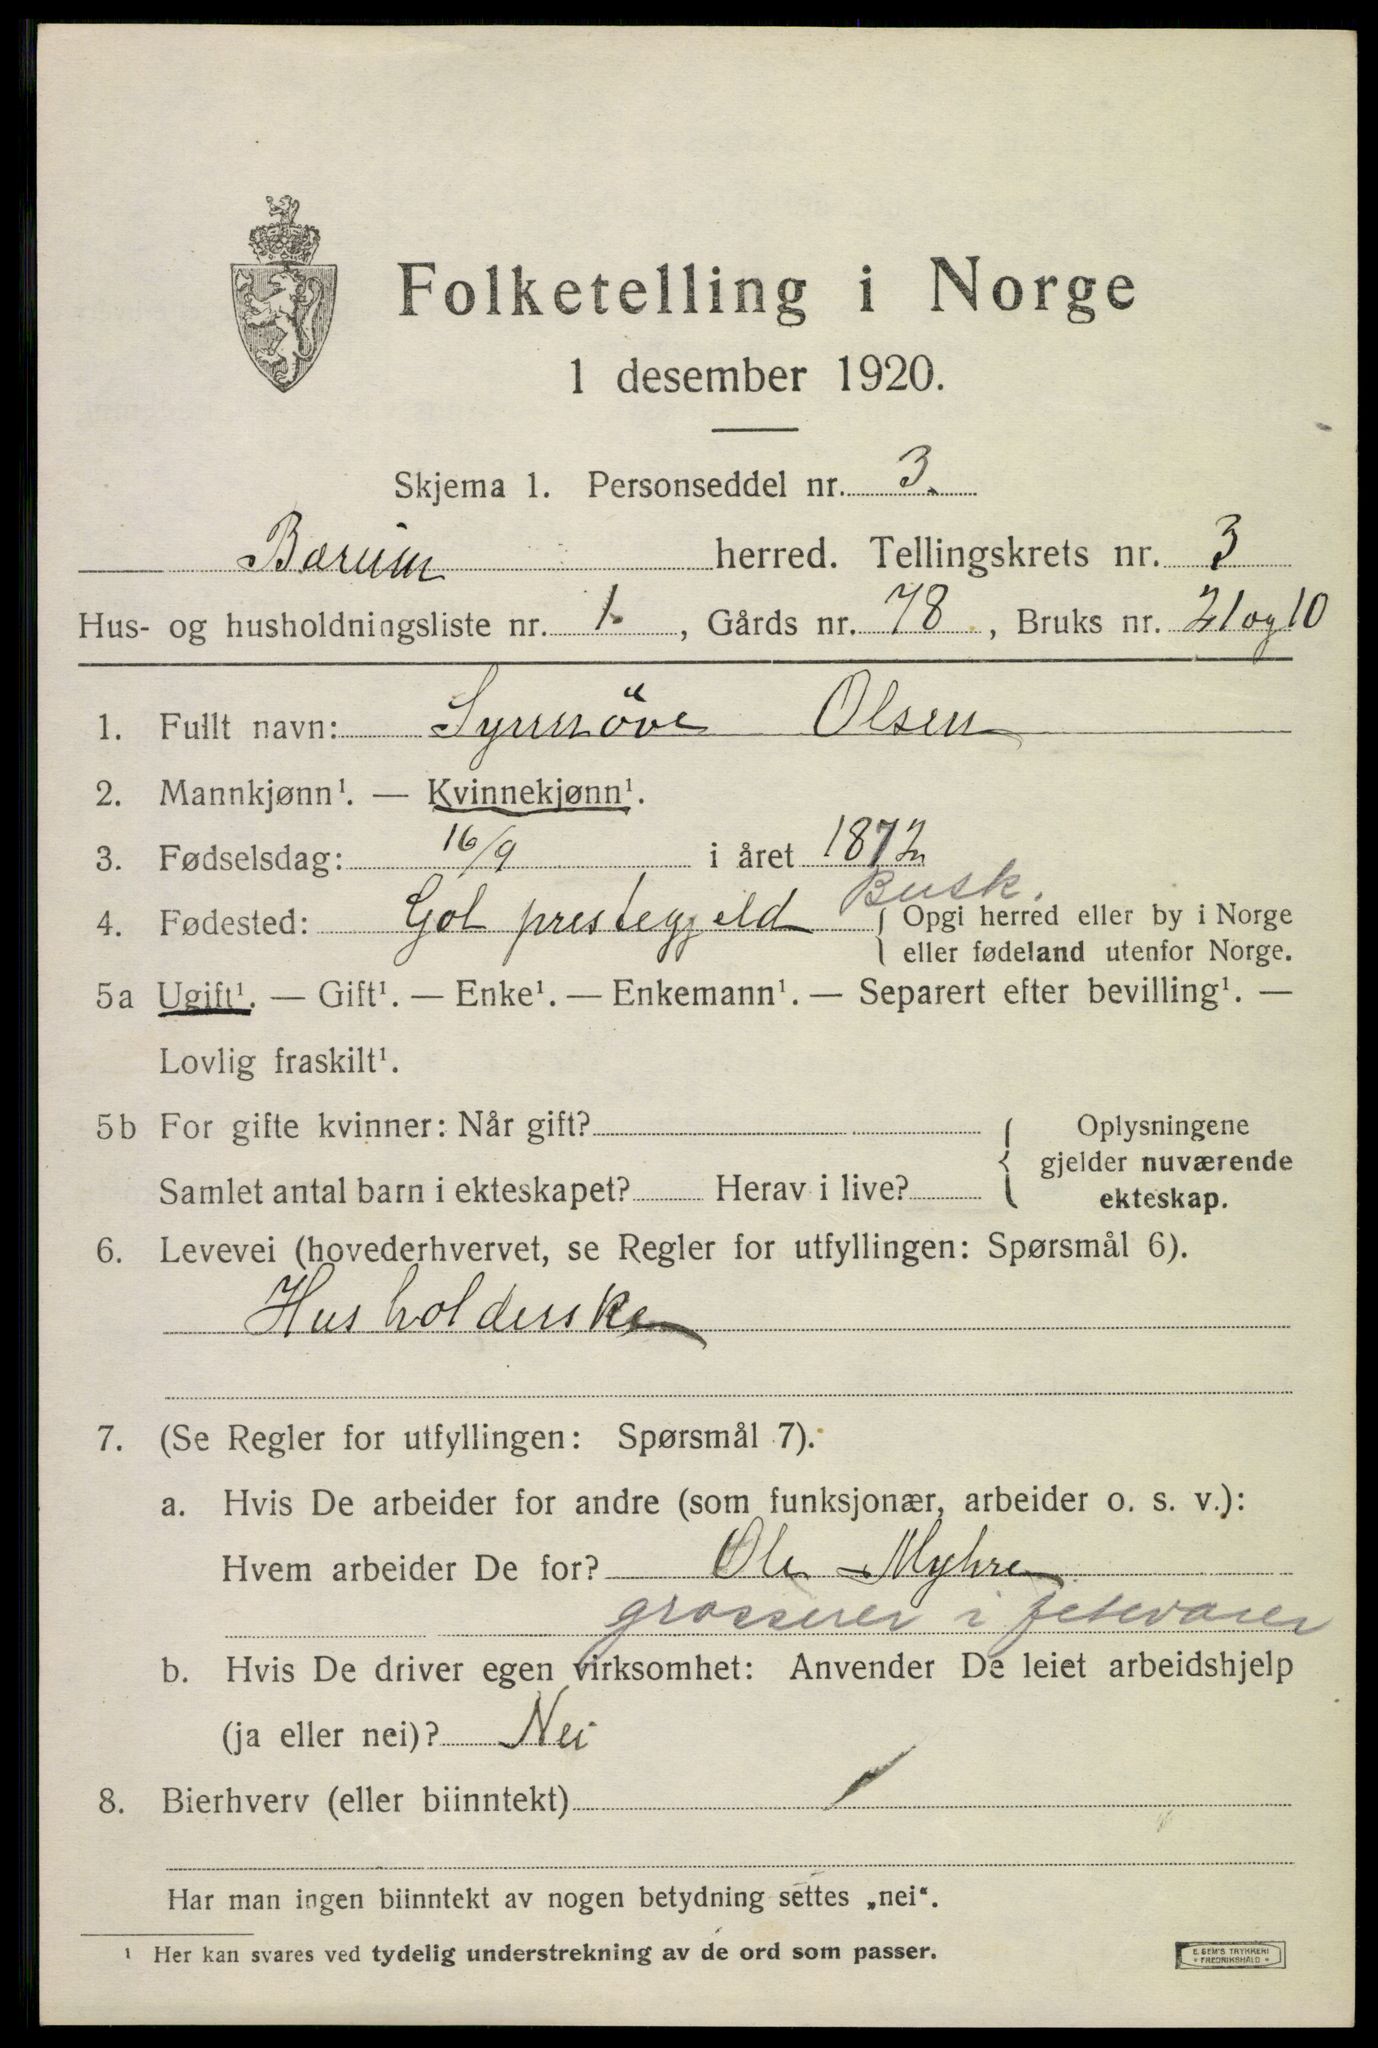 Folketelling i Norge
1 desember 1920.
Skjema 1. Personseddel nr. 3.
Bærum herred. Tellingskrets nr. 3
Hus- og husholdningsliste nr. 1. , Gårds nr. 78 , Bruks nr. 21 og 10
1. Fullt navn: Synnöve Olsen
2. Mannkjønn¹. — Kvinnekjønn¹.
3. Fødselsdag: 16/9 i året 1872
Busk.
4. Fødested: Gol prestegjeld { Opgi herred eller by i Norge
eller fødeland utenfor Norge.
5a Ugift¹. — Gift¹. — Enke¹. — Enkemann¹. — Separert efter bevilling¹. —
Lovlig fraskilt¹.
5b For gifte kvinner: Når gift? { Oplysningene
gjelder nuværende
Samlet antal barn i ekteskapet? Herav i live?
ekteskap.
6. Levevei (hovederhvervet, se Regler for utfyllingen: Spørsmål 6).
Husholderske
7. (Se Regler for utfyllingen: Spørsmål 7).
a. Hvis De arbeider for andre (som funksjonær, arbeider o. s. v.):
Hvem arbeider De for? Ole Myhre
grosserer i fetevarer
b. Hvis De driver egen virksomhet: Anvender De leiet arbeidshjelp
(ja eller nei)? Nei
8. Bierhverv (eller biinntekt)
Har man ingen biinntekt av nogen betydning settes „nei“.
¹ Her kan svares ved tydelig understrekning av de ord som passer.
E. SEM'S TRYKKERI
FREDRIKSHALD